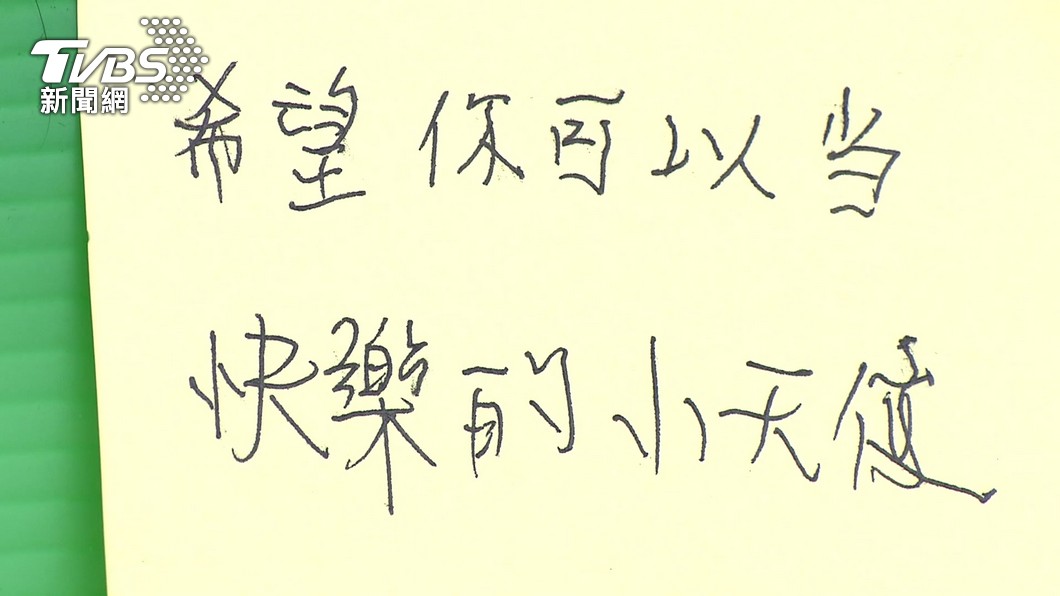 TVBS
新聞網
希望你可以当
快樂的小天使